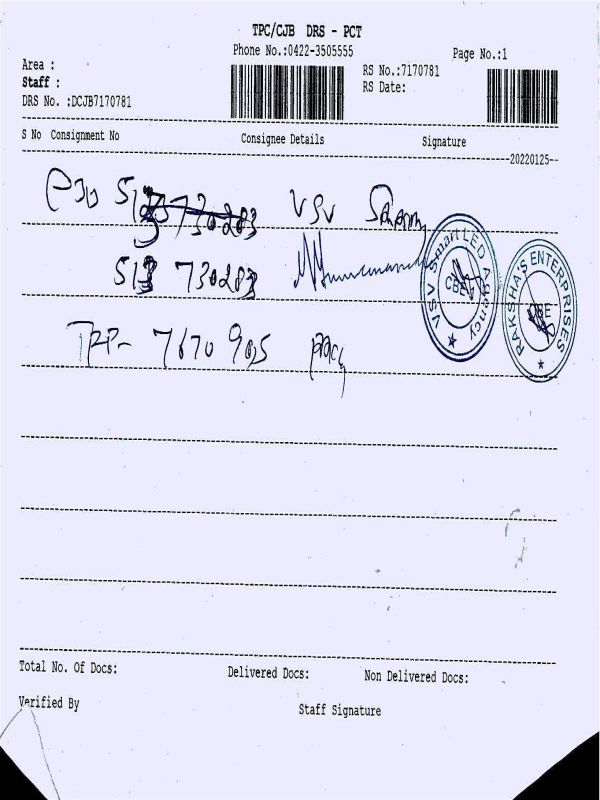 TPC/CJB DRS - PCT
Phone No.:0422-3505555
Page No.:1
Area :
RS No.:7170781
Staff :
RS Date:
DRS No. :DCJB7170781
S No Consignment No Consignee Details Signature
20220125
VSV
513 730283
VSV Smart LED Agency
CBE
RAKSHA'S ENTERPRISES
CBE
7670905
Total No. Of Docs: Delivered Docs: Non Delivered Docs:
Verified By Staff Signature